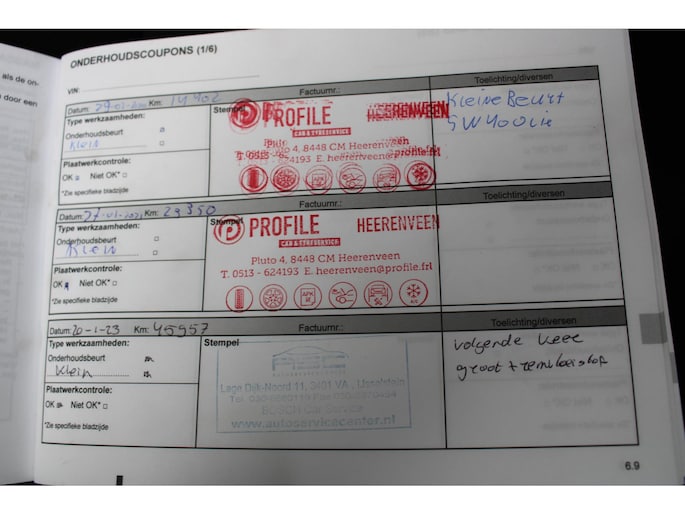 als de on-
door een
ONDERHOUDSCOUPONS (1/6)
VIN:
Datum: Km: 14902 Factuurnr.: Toelichting/diversen
Type werkzaamheden: Stempel
Onderhoudsbeurt
Klein
Plaatwerkcontrole:
OK Niet OK*
*Zie specifieke bladzijde
PROFILE HEERENVEEN
CAR & TYRESERVICE
Pluto 4, 8448 CM Heerenveen
T. 0513 - 624193 E. heerenveen@profile.frl
Kleine Beurt
5W40
Datum: Km: 29350 Factuurnr.: Toelichting/diversen
Type werkzaamheden: Stempel
Onderhoudsbeurt
Klein
Plaatwerkcontrole:
OK Niet OK*
*Zie specifieke bladzijde
PROFILE HEERENVEEN
CAR & TYRESERVICE
Pluto 4, 8448 CM Heerenveen
T. 0513 - 624193 E. heerenveen@profile.frl
APK
Datum: 20-1-23 Km: 45957 Factuurnr.: Toelichting/diversen
Type werkzaamheden: Stempel
Onderhoudsbeurt
Klein
Plaatwerkcontrole:
OK Niet OK*
*Zie specifieke bladzijde
Lage Dijk-Noord 11, 3401 VA, IJsselstein
BOSCH Car Service
www.autoservicecenter.nl
volgende keer
groot + remvloeistof
6.9